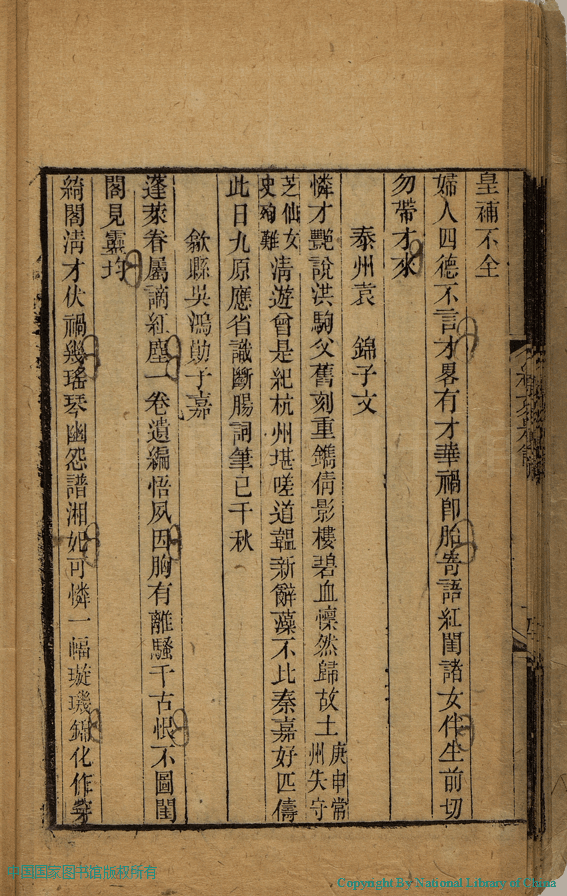 皇補不全
婦人四德不言才畧有才華禍卽胎寄語紅閨諸女伴生前切
勿帶才來
泰州袁　錦子文
憐才艷說洪駒父舊刻重鐫倩影樓碧血懍然歸故土庚申常州失守
芝仙女史殉難清遊曾是紀杭州堪嗟道韞新辭藻不比秦嘉好匹儔
此日九原應省識斷腸詞筆已千秋
歙縣吳鴻勛子嘉
蓬萊眷屬謫紅塵一卷遺編悟夙因胸有離騷千古恨不圖閨
閣見靈均
綺閣淸才伏禍幾瑤琴幽怨譜湘妃可憐一幅璇璣錦化作穿
中国国家图书馆版权所有
Copyright By National Library of China